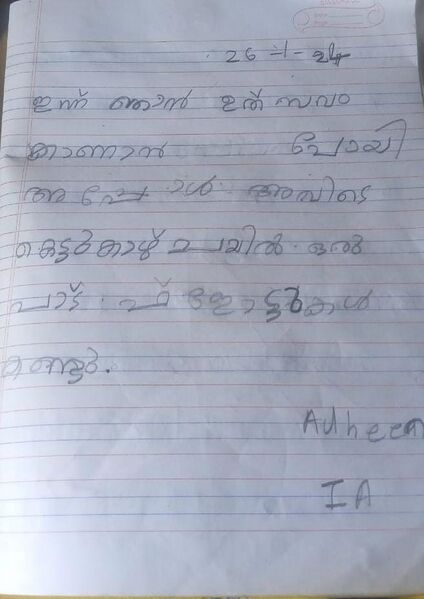 26-1-24
ഇന്ന് ഞാൻ ഉത്സവം
കാണാൻ പോയി
അപ്പോൾ അവിടെ
കെട്ടുകാഴ്ചയിൽ. ഒരു
പാട്. ഫ്ളോട്ടുകൾ
കണ്ടു.
Adheem
I A